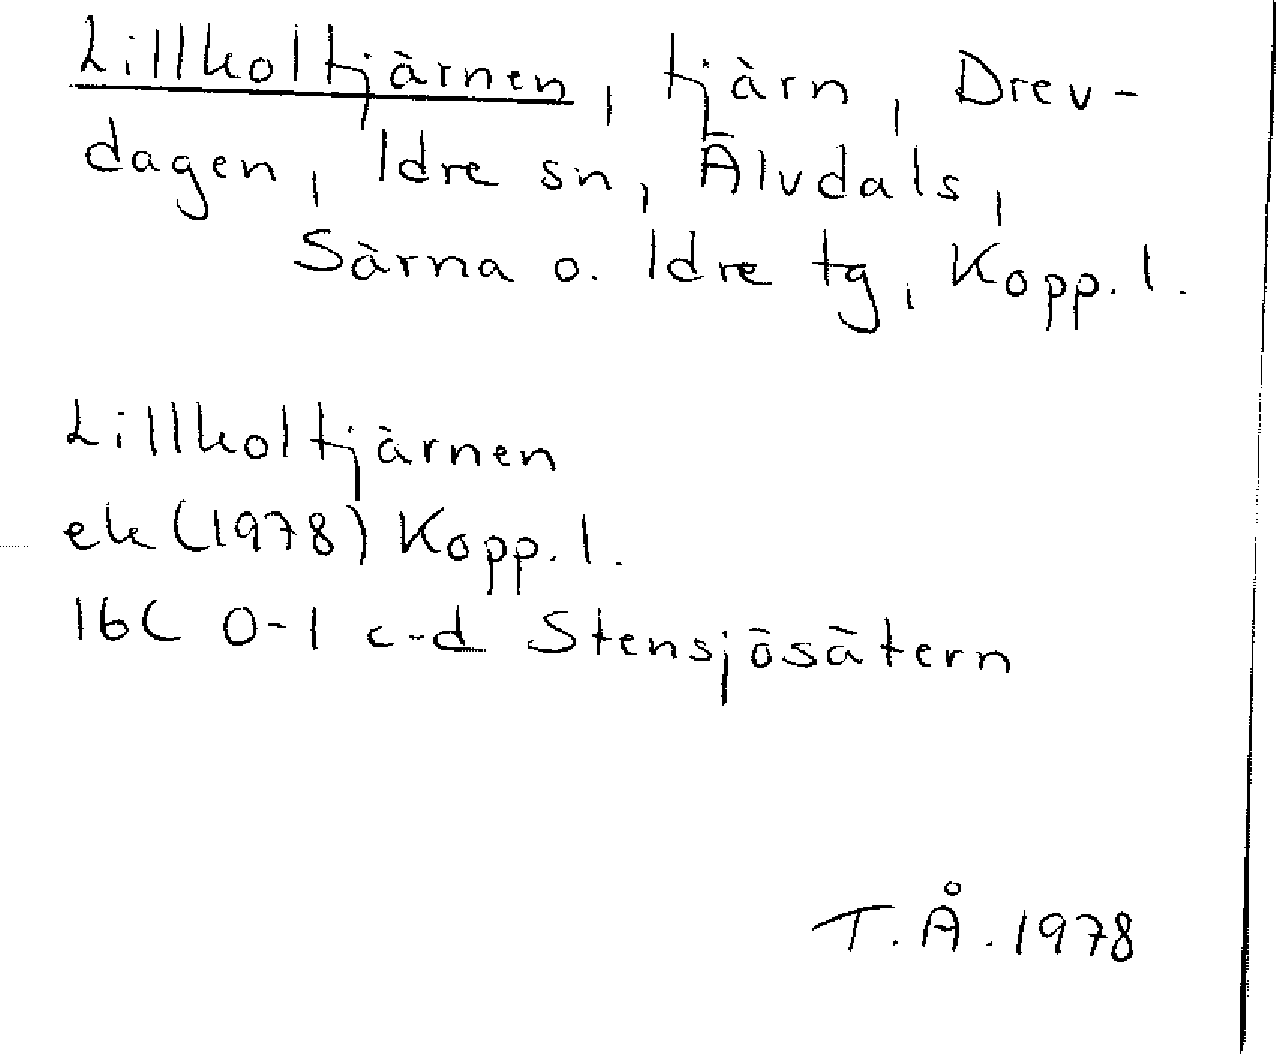 Lillkoltjärnen, tjärn, Drev-
dagen, Idre sn, Älvdals,
Särna o. Idre tg, Kopp. l.
Lillkoltjärnen
ek (1978) Kopp. l.
16C 0-1 c-d Stensjösätern
T. Å. 1978